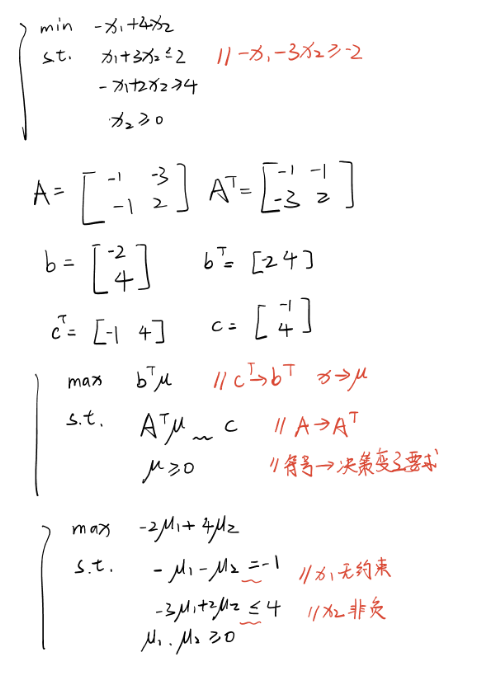 min -x₁+4x₂
s.t. x₁+3x₂≤2 // -x₁-3x₂≥-2
-x₁+2x₂≥4
x₂≥0
A = [ -1 -3 ] Aᵀ= [ -1 -1 ]
[ -1 2 ] [ -3 2 ]
b = [ -2 ] bᵀ= [-2 4]
[ 4 ]
cᵀ= [-1 4] c = [ -1 ]
[ 4 ]
max bᵀμ // cᵀ→bᵀ x→μ
s.t. Aᵀμ ~ c // A→Aᵀ
μ≥0 // 符号→决策变量要求
max -2μ₁+4μ₂
s.t. -μ₁-μ₂=-1 // x₁无约束
-3μ₁+2μ₂≤4 // x₂非负
μ₁.μ₂≥0